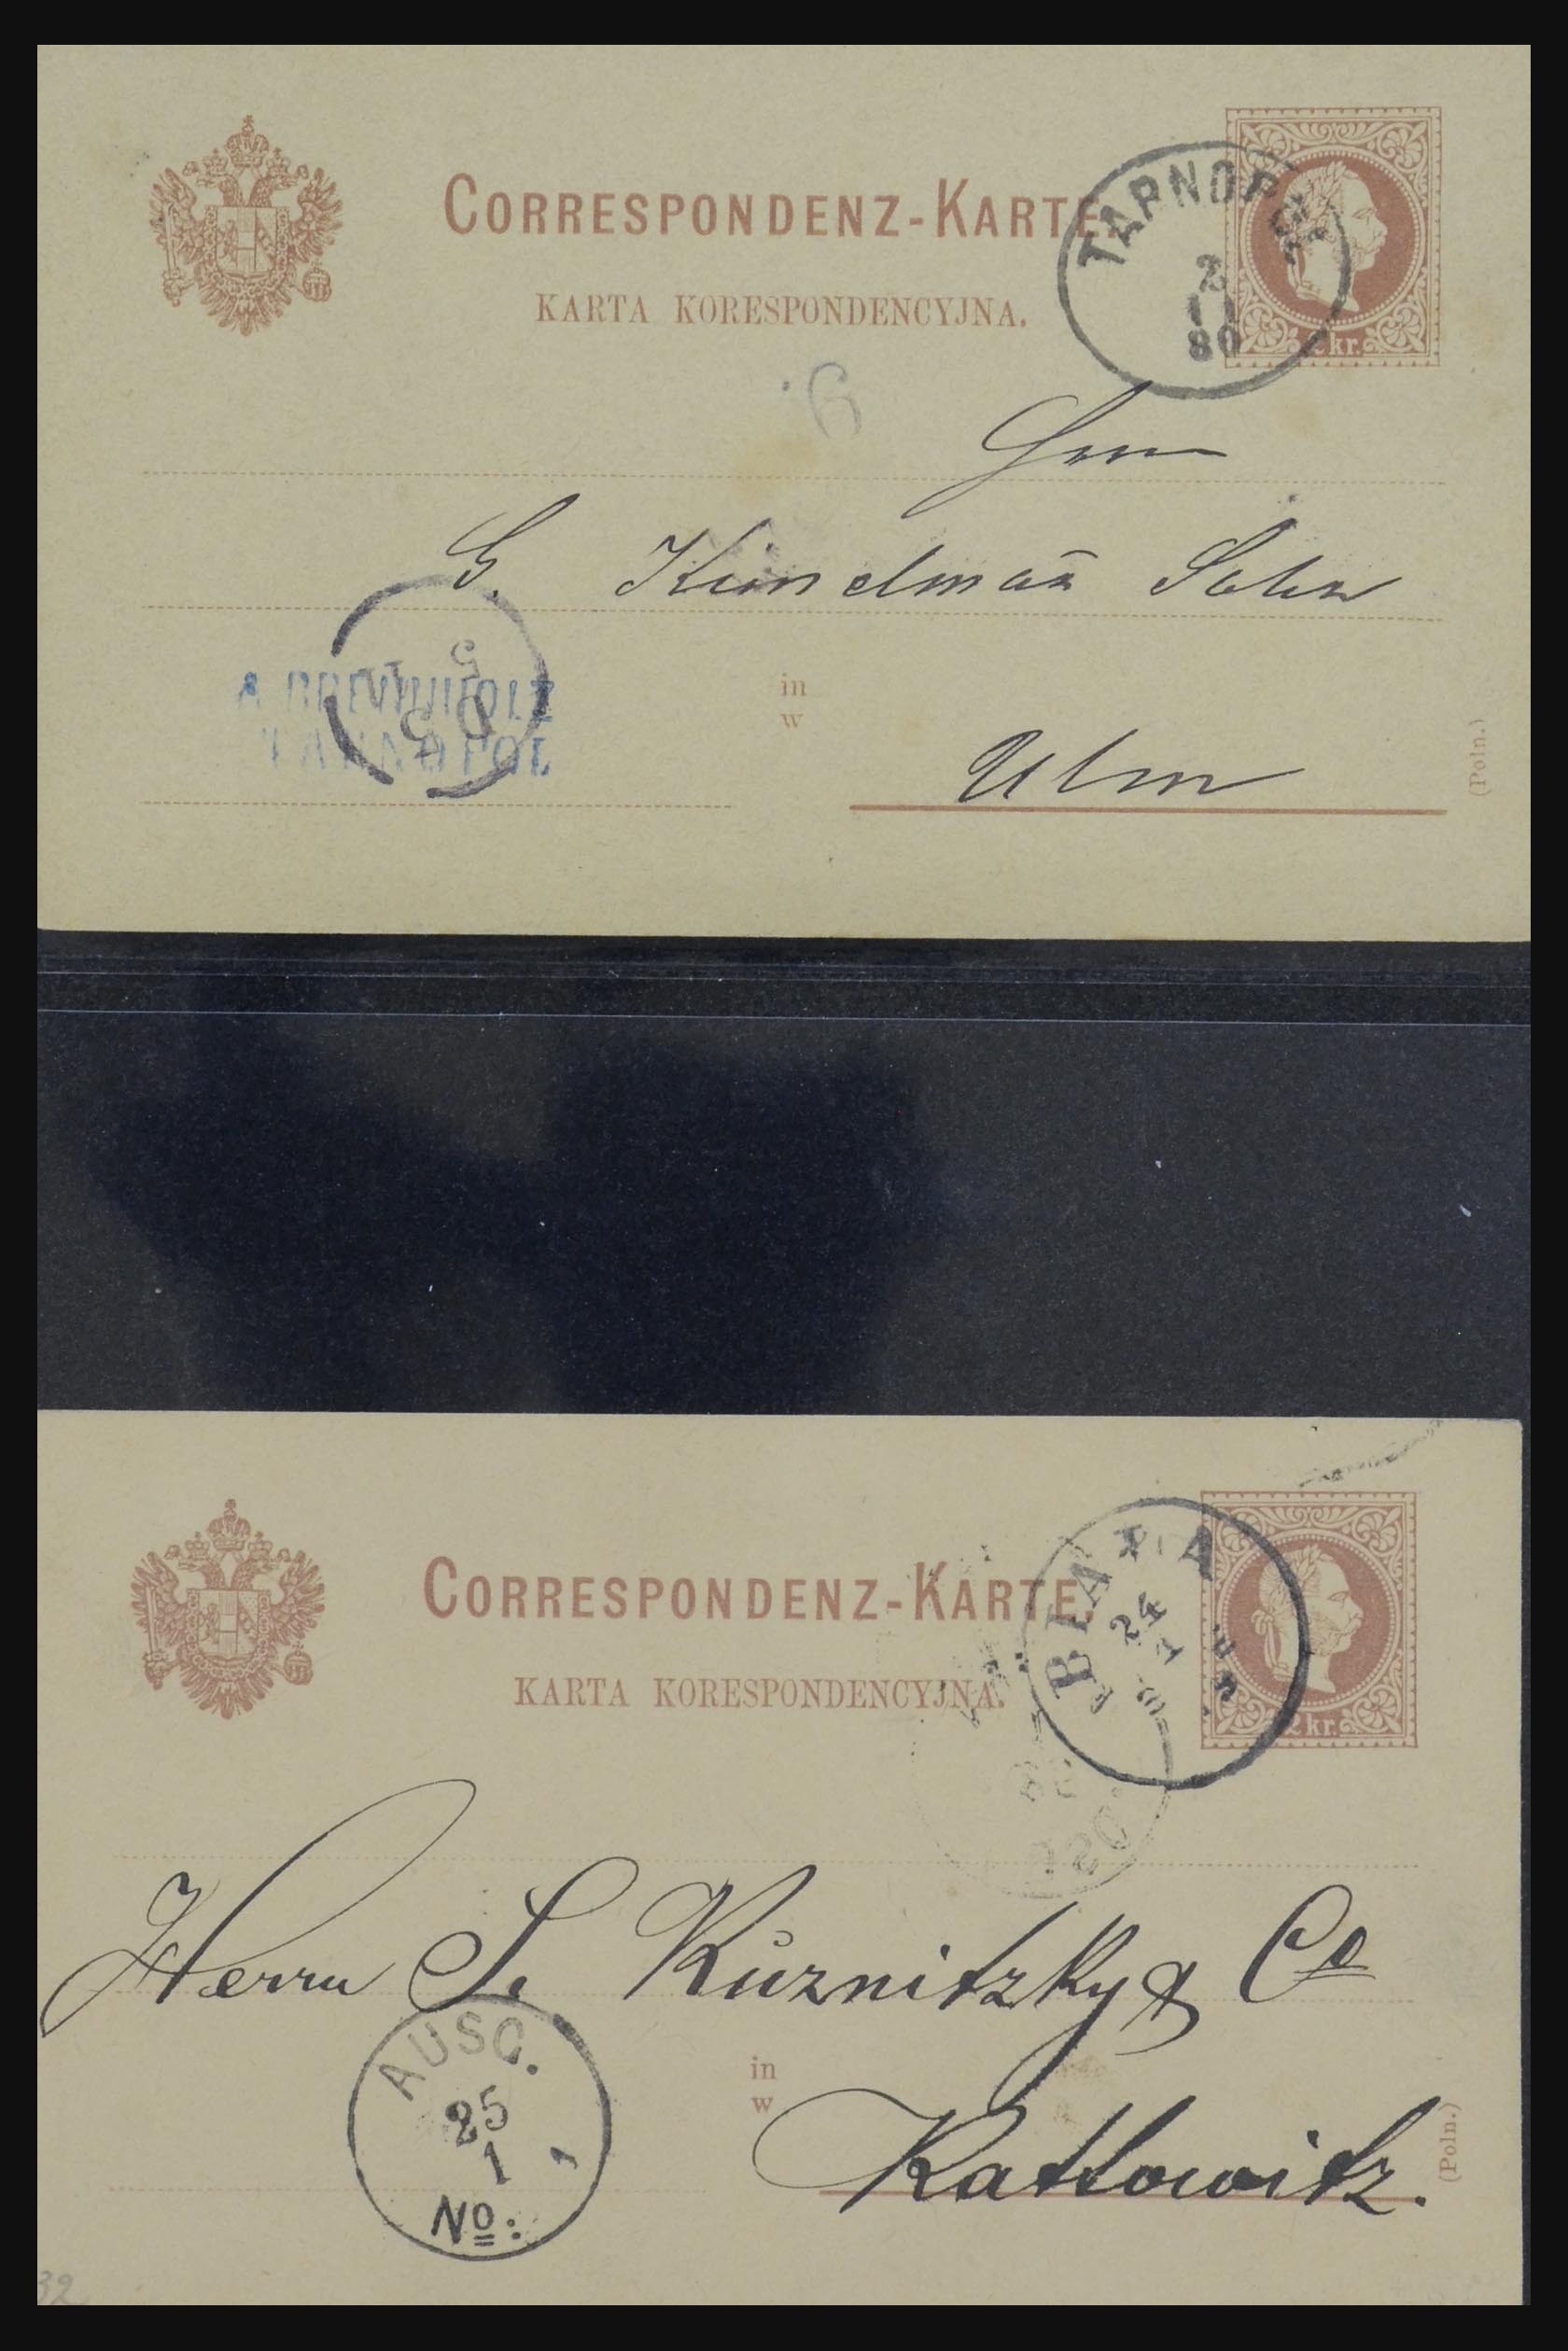 CORRESPONDENZ-KARTE.
TARNOPOL
2
11
80
2 kr.
KARTA KORESPONDENCYJNA.
6.
Herrn
G. Kunelmañ Sohn
5
TARNOPOL
in
w
Ulm
(Poln.)
CORRESPONDENZ-KARTE.
BIALA
24
1
2 kr.
KARTA KORESPONDENCYJNA.
Herrn S. Kuznitzky & Co
AUSG.
25
1
1
No:
in
w
Kattowitz.
(Poln.)
32